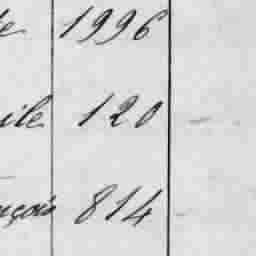 e 1996
ile 120
nçois 814